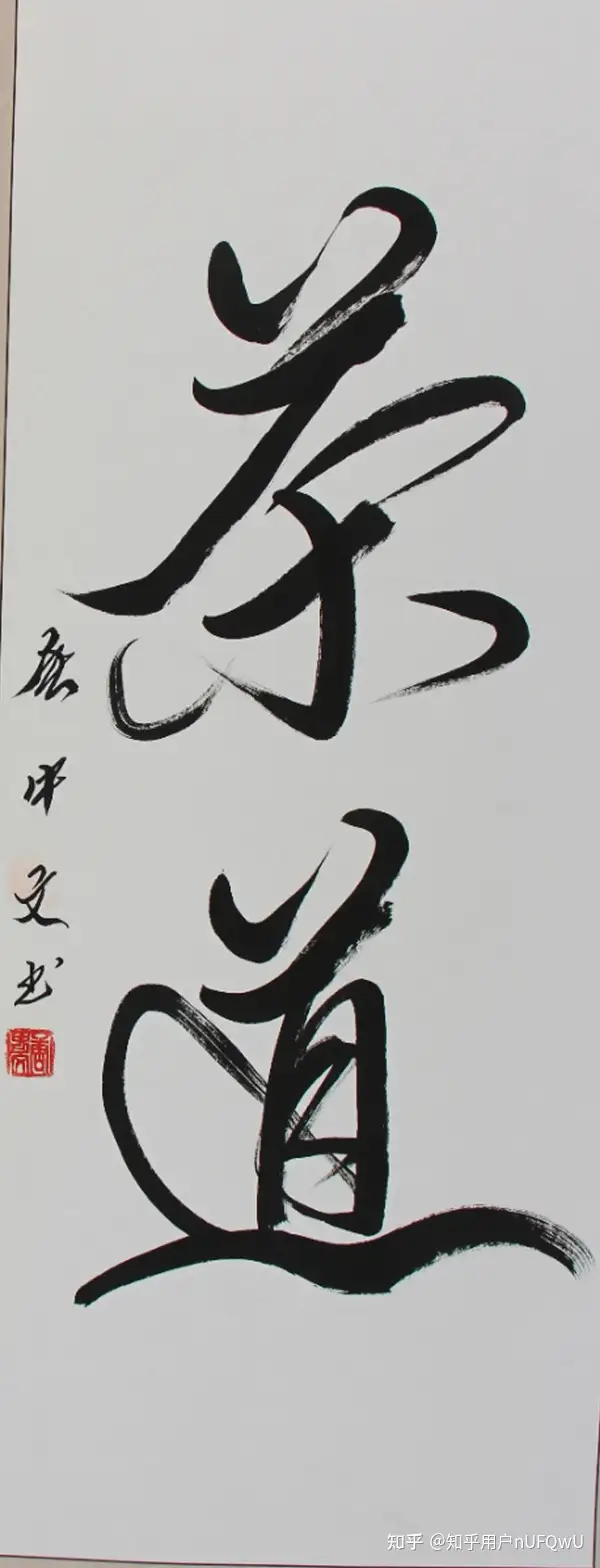 茶道
文书
知乎 @知乎用户nUFQwU